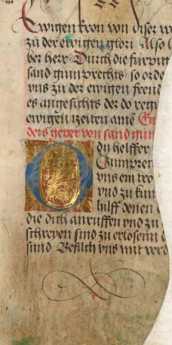 Ewigen kron von diser w
zu der ewigen glori Also l
ber herr Durch die furpitt
sand gumprechts so orde
vns zu der ewigen freud
es angesichts der do regi
ewigen zeiten ame
ders gepet von sand gum
Du helffer
Gumprec
vns ein tro
vnd zu kun
hilff denen
die dich anruffen vnd zu
schreyen sind zu erlosent d
sand vns mit